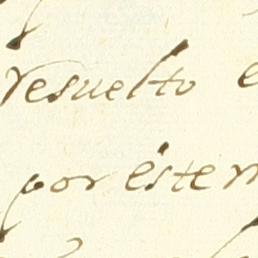 resuelto
por éste